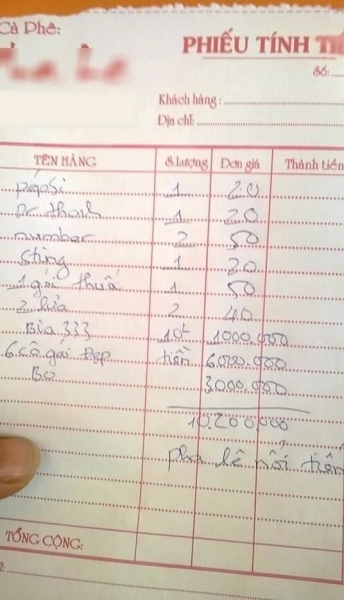 Cà Phê:
PHIẾU TÍNH
Số:
Khách hàng :
Địa chỉ:
TÊN HÀNG S.Lượng Đơn giá Thành tiền
pépsi 1 20
Dr. thanh 1 20
number 2 50
sting 1 20
1 gói thuố 1 50
2 lửa 2 40
Bia 333 10 1000.000
6 cô gái Đẹp tiền 6.000.000
Bo 3.000.000
10.200.000
pha lê nổi tiến
TỔNG CỘNG: